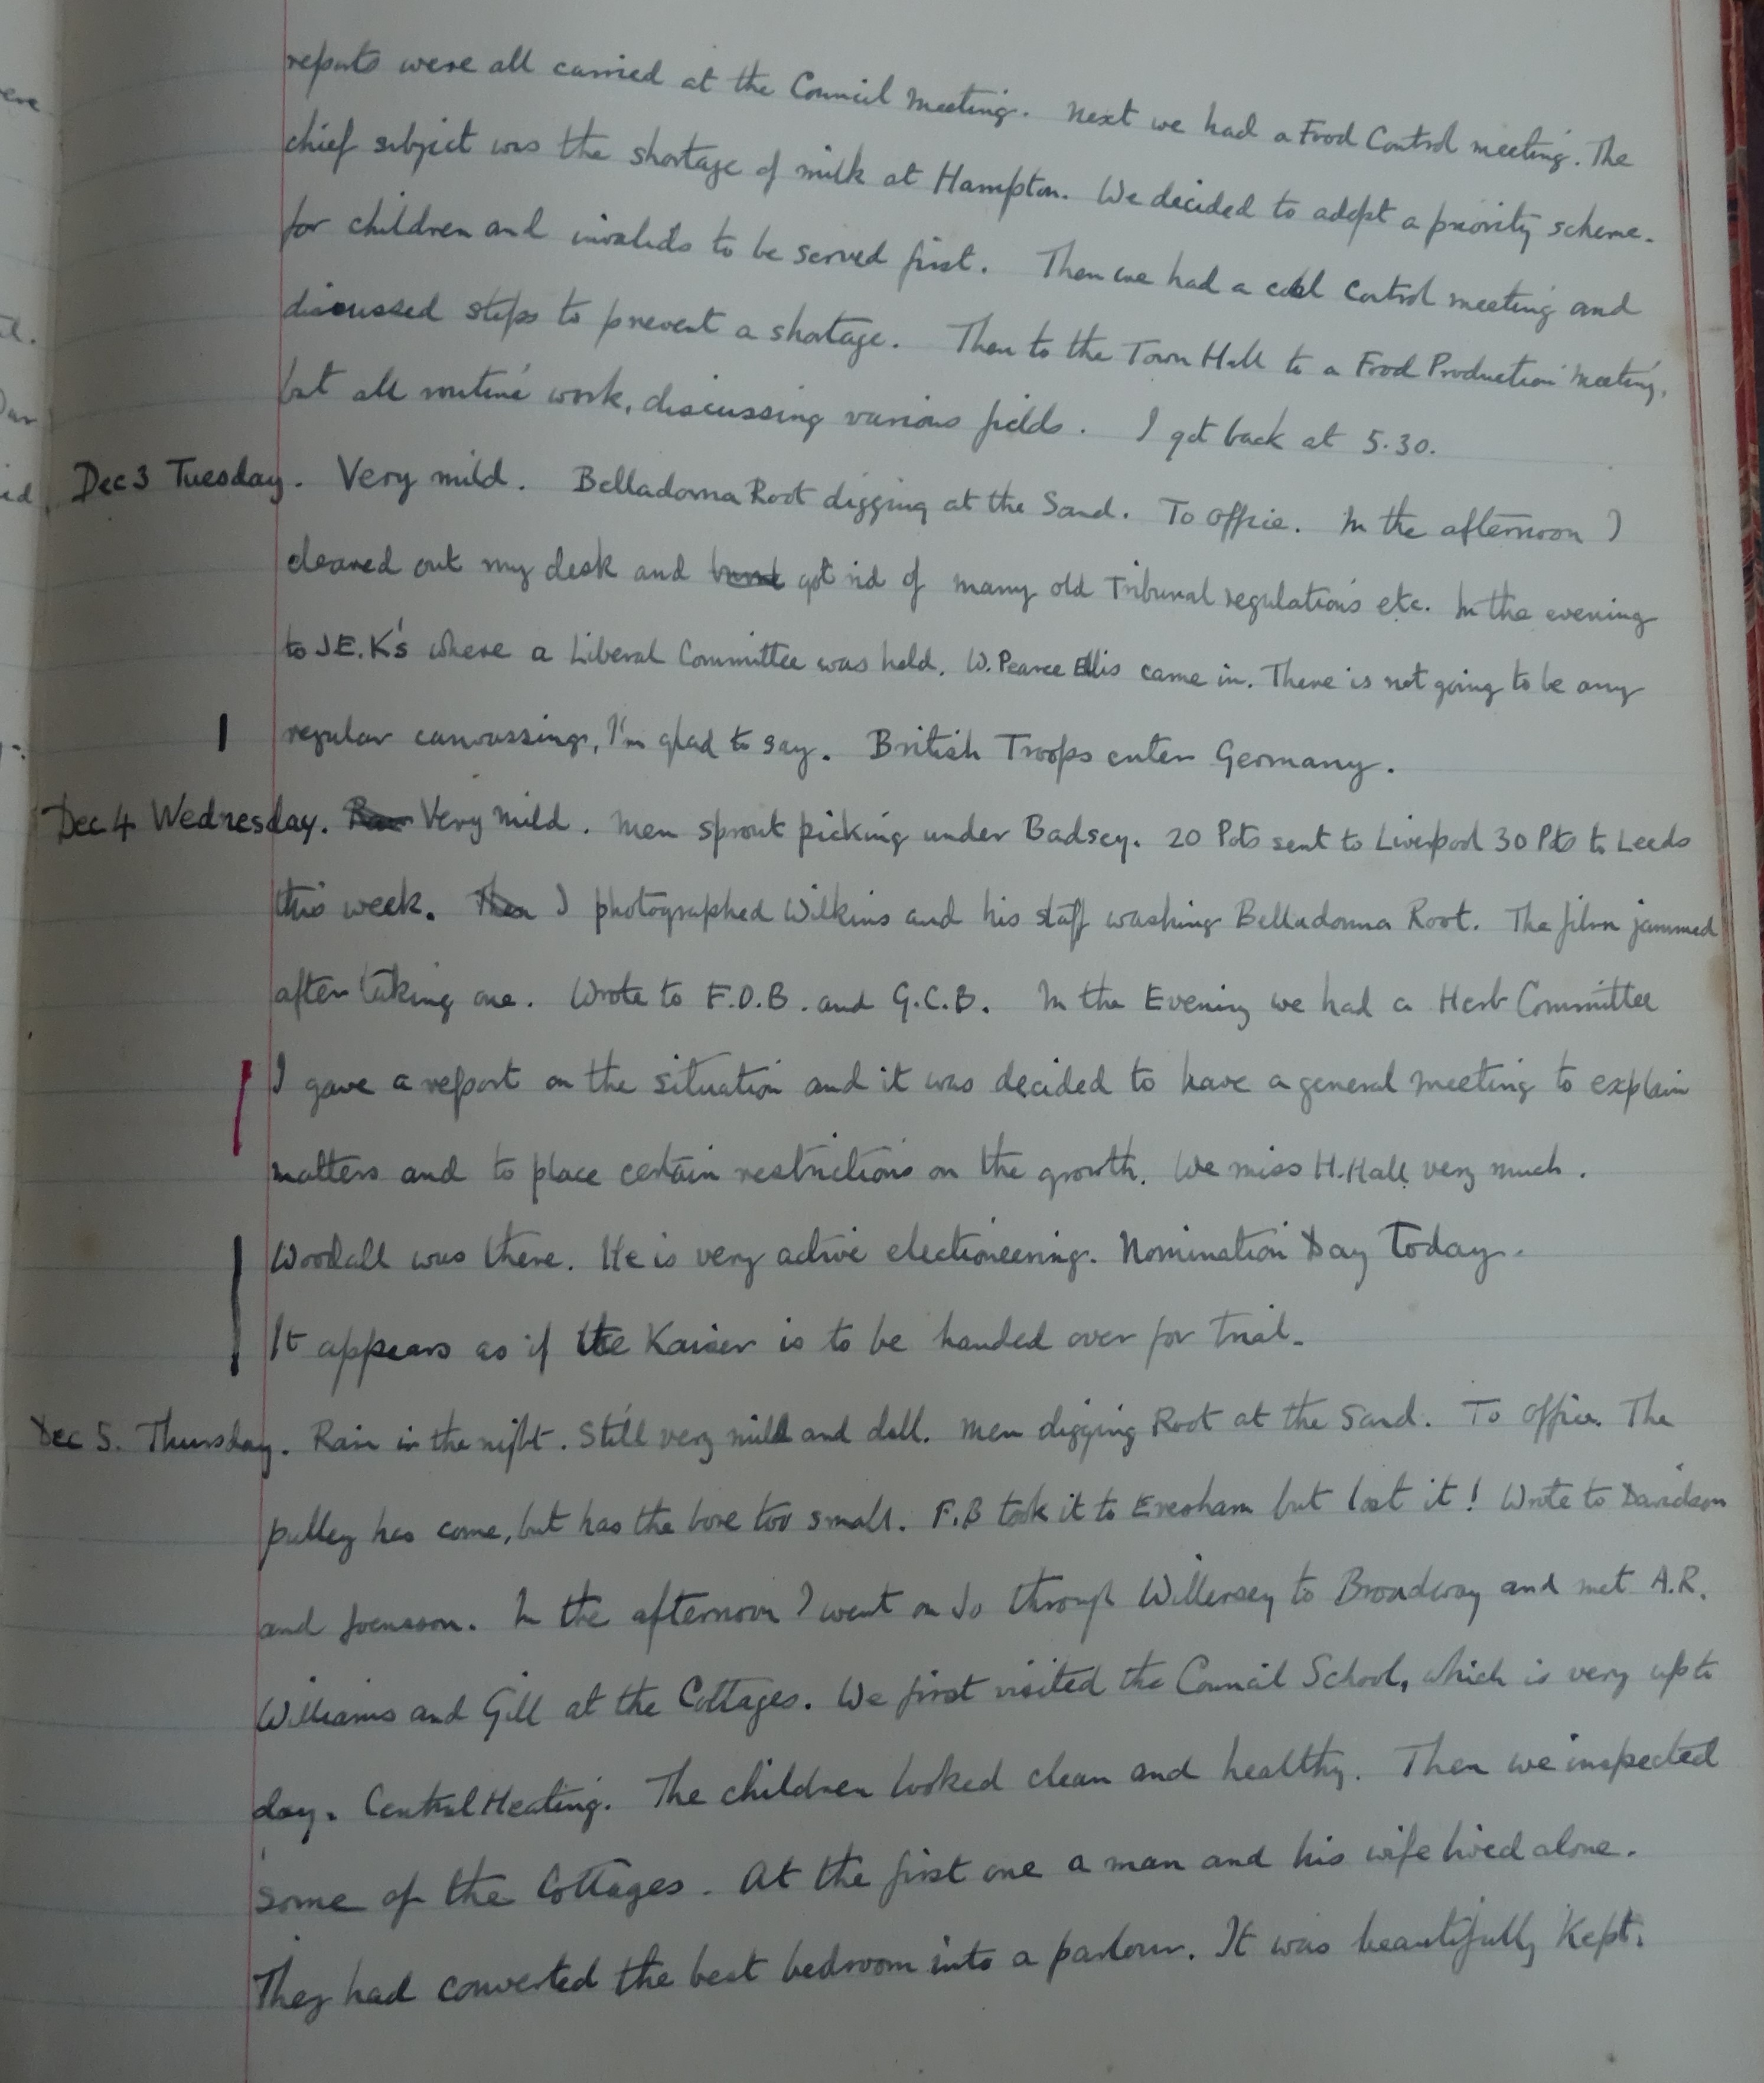 reports were all carried at the Council Meeting. Next we had a Food Control meeting. The
chief subject was the shortage of milk at Hampton. We decided to adopt a priority scheme.
for children and invalids to be served first. Then we had a coal Control meeting and
discussed steps to prevent a shortage. Then to the Town Hall to a Food Production Meeting,
but all routine work, discussing various fields. I got back at 5.30.
Dec 3 Tuesday. Very mild. Belladonna Root digging at the Sand. To Office. In the afternoon I
cleared out my desk and got rid of many old Tribunal regulations etc. In the evening
to J.E.K's where a Liberal Committee was held. W. Pearce Ellis came in. There is not going to be any
regular canvassing, I'm glad to say. British Troops enter Germany.
Dec 4 Wednesday. Very mild. Men sprout picking under Badsey. 20 Pots sent to Liverpool 30 Pts to Leeds
this week. I photographed Wilkins and his staff washing Belladonna Root. The film jammed
after taking one. Wrote to F.D.B. and G.C.B. In the Evening we had a Herb Committee
I gave a report on the situation and it was decided to have a general meeting to explain
matters and to place certain restrictions on the growth. We miss H. Hall very much.
Woodall was there. He is very active electioneering. Nomination Day Today.
It appears as if the Kaiser is to be handed over for trial.
Dec 5. Thursday. Rain in the night. Still very mild and dull. Men digging Root at the Sand. To Office. The
pulley has come, but has the bore too small. F.B took it to Evesham but lost it! Wrote to Davidson
and In the afternoon I went on Jo through Willersey to Broadway and met A.R.
Williams and Gill at the Cottages. We first visited the Council School, which is very up to
day. Central Heating. The children looked clean and healthy. Then we inspected
some of the Cottages. At the first one a man and his wife lived alone.
They had converted the best bedroom into a parlour. It was beautifully Kept.